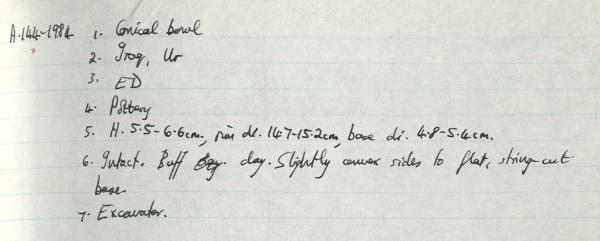 A.144-1984 1. Conical bowl
2. Iraq, Ur
3. ED
4. Pottery
5. H. 5.5-6.6cm, rim di. 14.7-15.2cm, base di. 4.8-5.4cm.
6. Intact. Buff clay. Slightly convex sides to flat, string-cut
base.
7. Excavator.